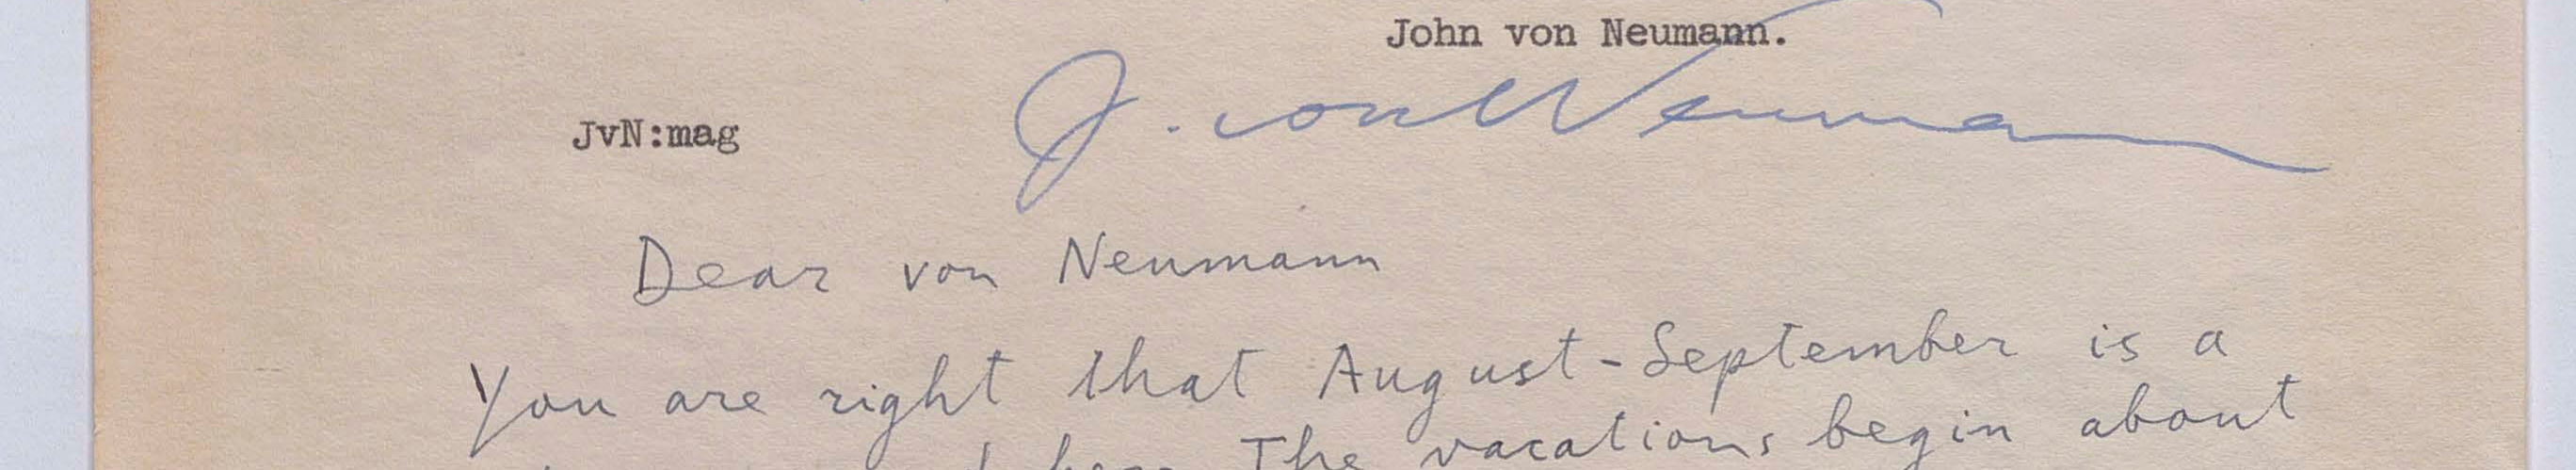 John von Neumann.
J. von Neumann
JvN:mag
Dear von Neumann
You are right that August-September is a
The vacations begin about